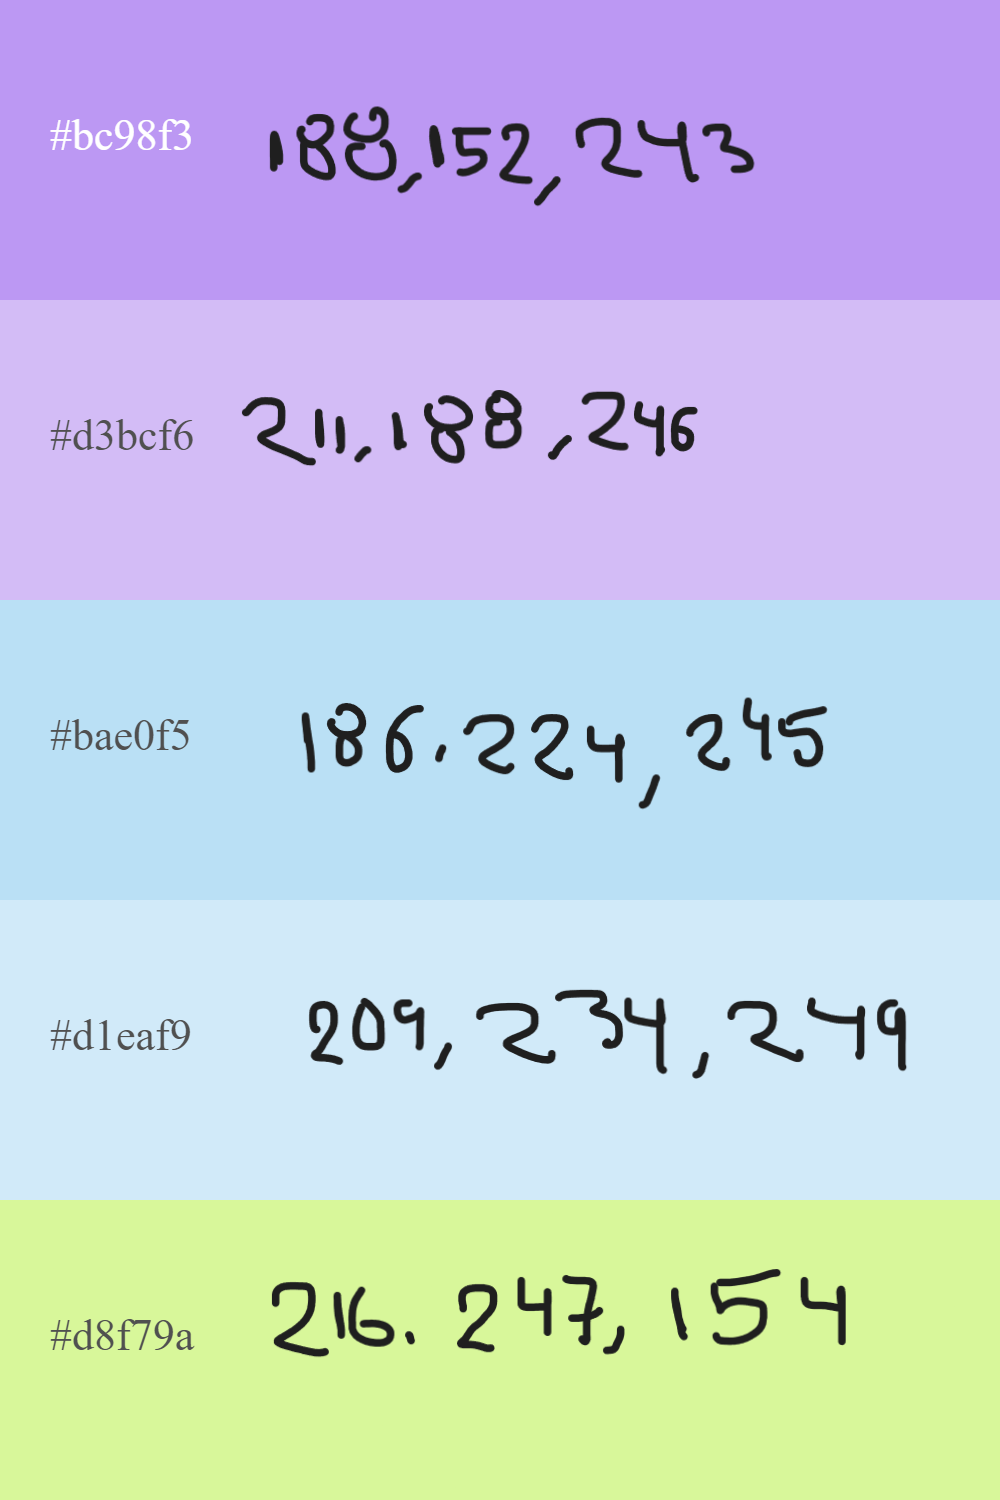 #bc98f3 188,152,243
#d3bcf6 211,188,246
#bae0f5 186.224,245
#d1eaf9 209,234,249
#d8f79a 216.247,154